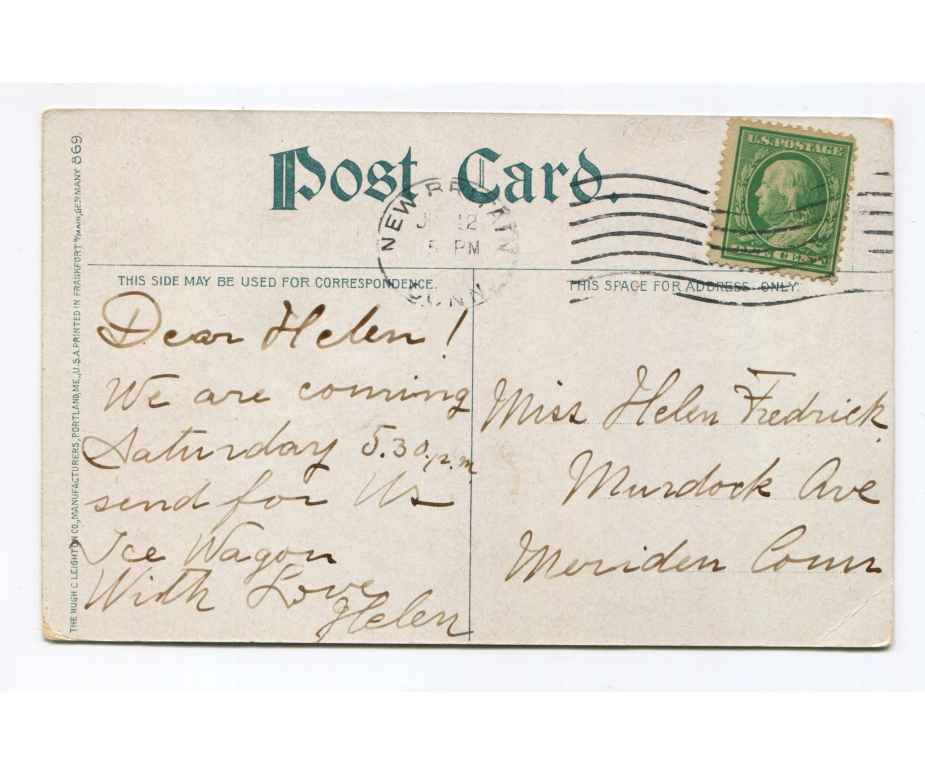 Post Card.
U.S. POSTAGE
NEW BRITAIN
12
5 PM
CONN
THIS SIDE MAY BE USED FOR CORRESPONDENCE.
THIS SPACE FOR ADDRESS ONLY.
Dear Helen!
We are coming
Saturday 5.30 p.m
send for Us
Ice Wagon
With Love
Helen
Miss Helen Fredrick
Murdock Ave
Meriden Conn
THE HUGH C. LEIGHTON CO., MANUFACTURERS, PORTLAND, ME., U.S.A. PRINTED IN FRANKFORT a/MAIN, GERMANY 869.